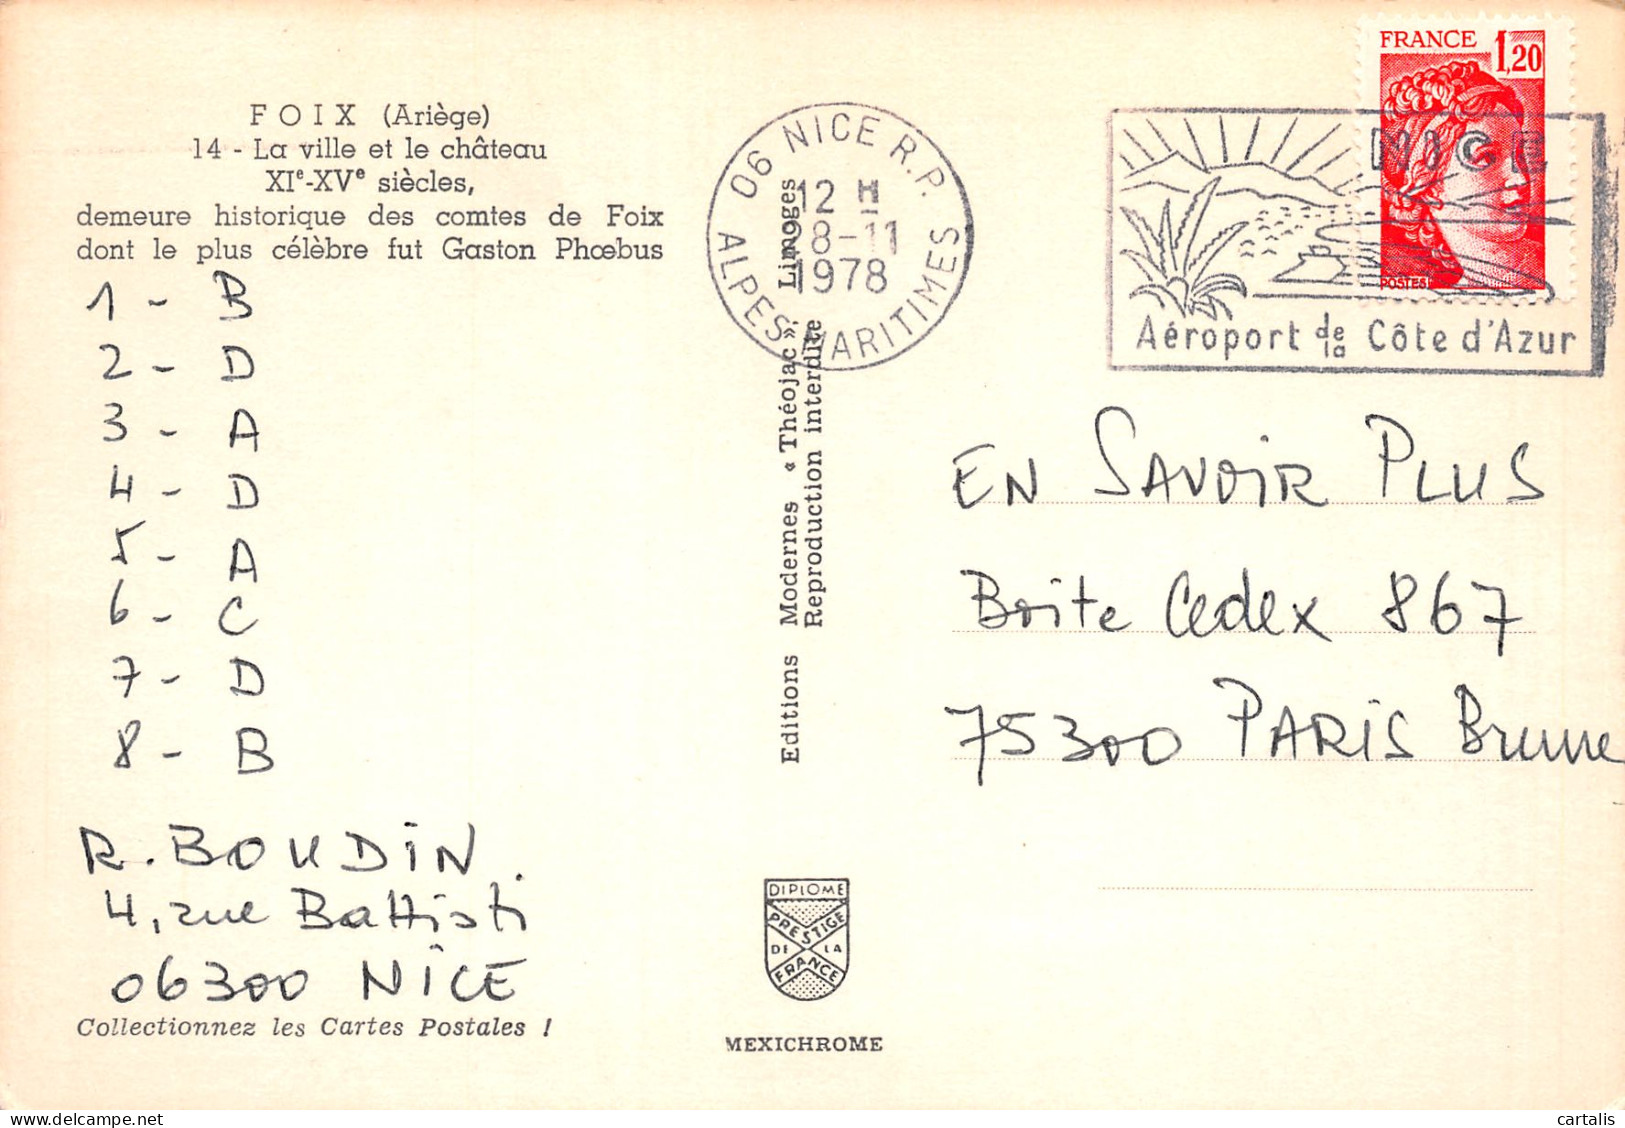 FOIX (Ariège)
14 - La ville et le château
XIe-XVe siècles,
demeure historique des comtes de Foix
dont le plus célèbre fut Gaston Phœbus
1 - B
2 - D
3 - A
4 - D
5 - A
6 - C
7 - D
8 - B
R. BOUDIN.
4, rue Battisti
06300 NICE
Collectionnez les Cartes Postales !
Editions Modernes « Théojac », Limoges
Reproduction interdite
DIPLOME
PRESTIGE
DE LA
FRANCE
MEXICHROME
06 NICE R.P.
12 H
8-11
1978
ALPES MARITIMES
FRANCE 1,20
POSTES
NICE
Aéroport de la Côte d'Azur
EN SAVOIR PLUS
Boite Cedex 867
75300 PARIS Brune
cartalis